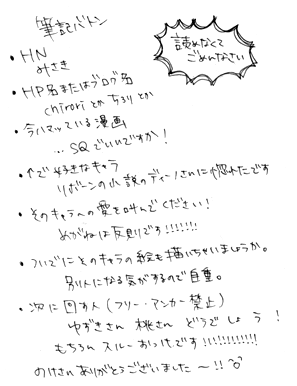 筆記バトン
読めなくて
ごめんなさい
・HN
みさき
・HP名またはブログ名
chiroriとかちろりとか
・今ハマっている漫画
…SQでいいですか!
・↑で好きなキャラ
リボーンの小説のディーノさんに惚れたです
・そのキャラへの愛を叫んでください!
めがねは反則です!!!!!!!
・ついでにそのキャラの絵も描いちゃいましょうか。
別人になる気がするので自重。
・次に回す人(フリー・アンカー禁止)
ゆずきさん 桃さん どうでしょう!
もちろんスルーおっけです!!!!!!!!!!!
のけさんありがとうございました〜!!